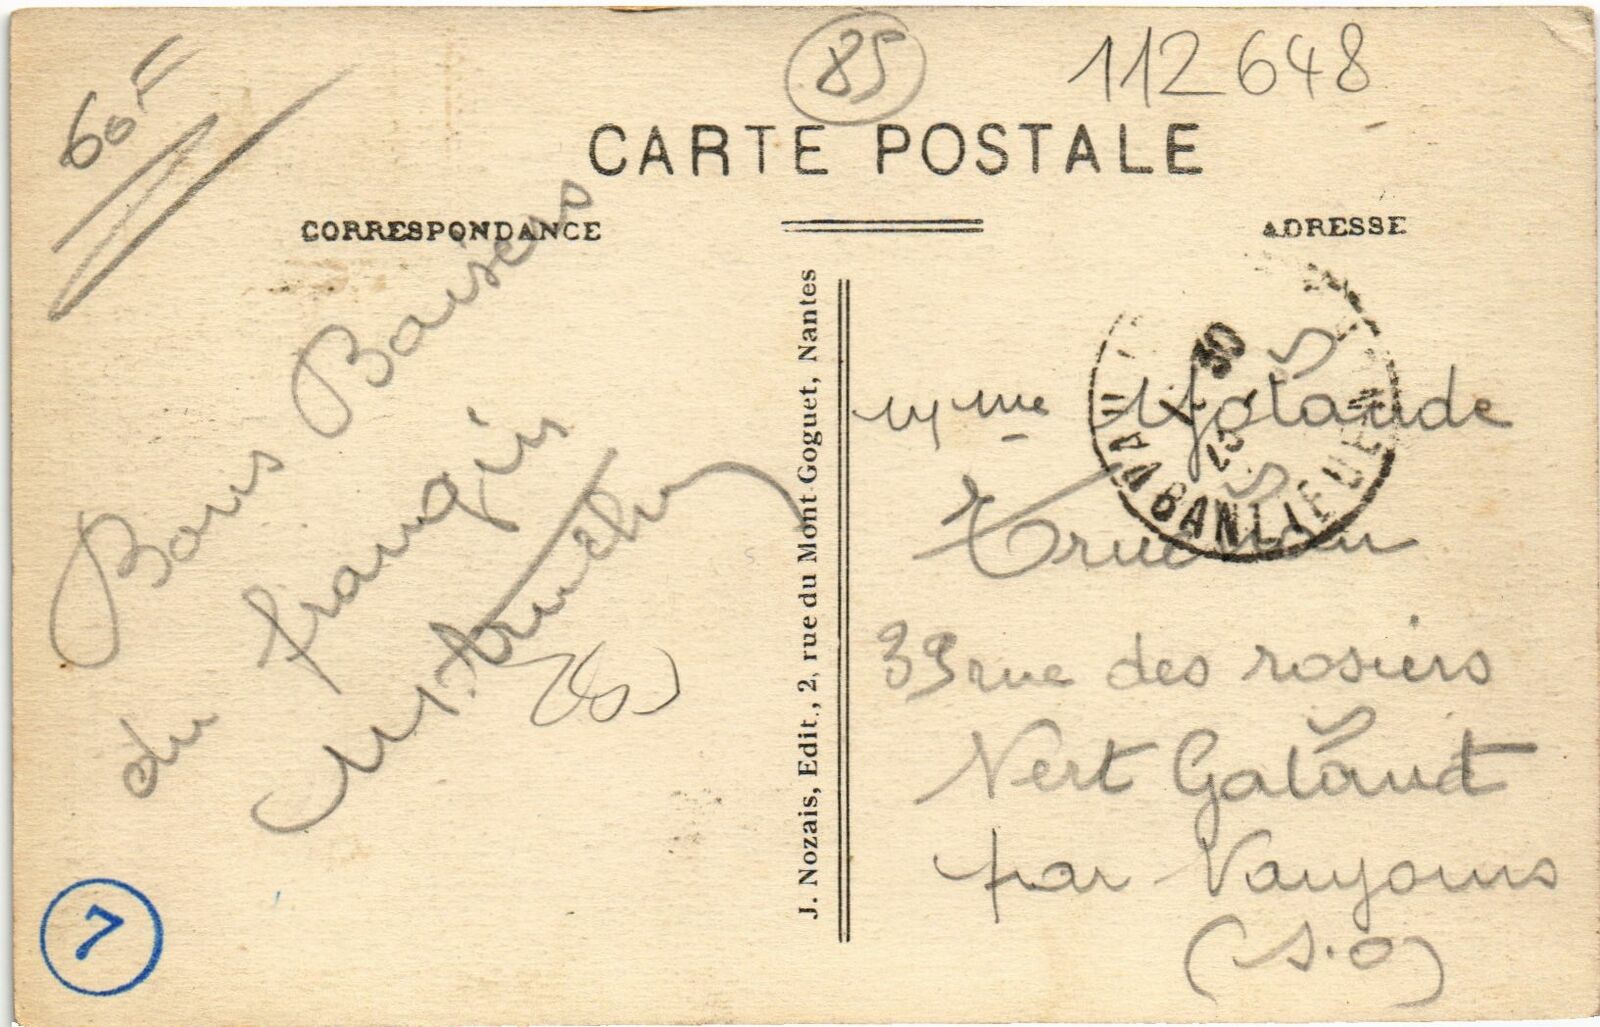 60F
85
112648
CARTE POSTALE
CORRESPONDANCE
ADRESSE
Bons Baisers
du frangin
J. Nozais, Edit., 2, rue du Mont-Goguet, Nantes
Mme Yolande
39 rue des rosiers
Vert Galand
par Vaujours
(S.O)
30
23
BANLIEUE
7